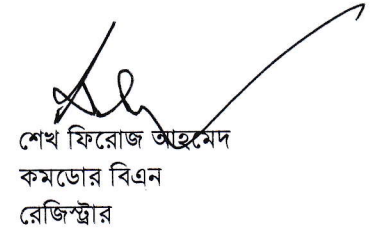 শেখ ফিরোজ আহমেদ
কমডোর বিএন
রেজিস্ট্রার